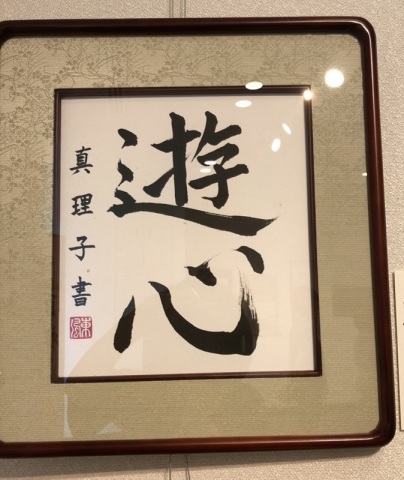 遊心
真理子書